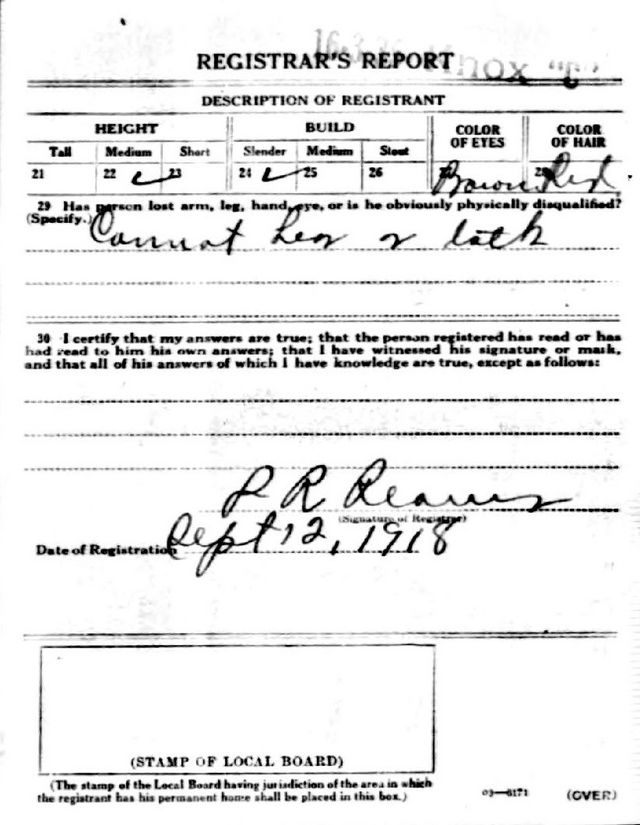 REGISTRAR'S REPORT
DESCRIPTION OF REGISTRANT
HEIGHT BUILD COLOR OF EYES COLOR OF HAIR
Tall Medium Short Slender Medium Stout
21 22 23 24 25 26 Brown Red
29 Has person lost arm, leg, hand, eye, or is he obviously physically disqualified?
(Specify.) Cannot hear or
30 I certify that my answers are true; that the person registered has read or has
had read to him his own answers; that I have witnessed his signature or mark,
and that all of his answers of which I have knowledge are true, except as follows:
R
(Signature of Registrar)
Date of Registration Sept 12, 1918
(STAMP OF LOCAL BOARD)
(The stamp of the Local Board having jurisdiction of the area in which
the registrant has his permanent home shall be placed in this box.)
03—6171 (OVER)